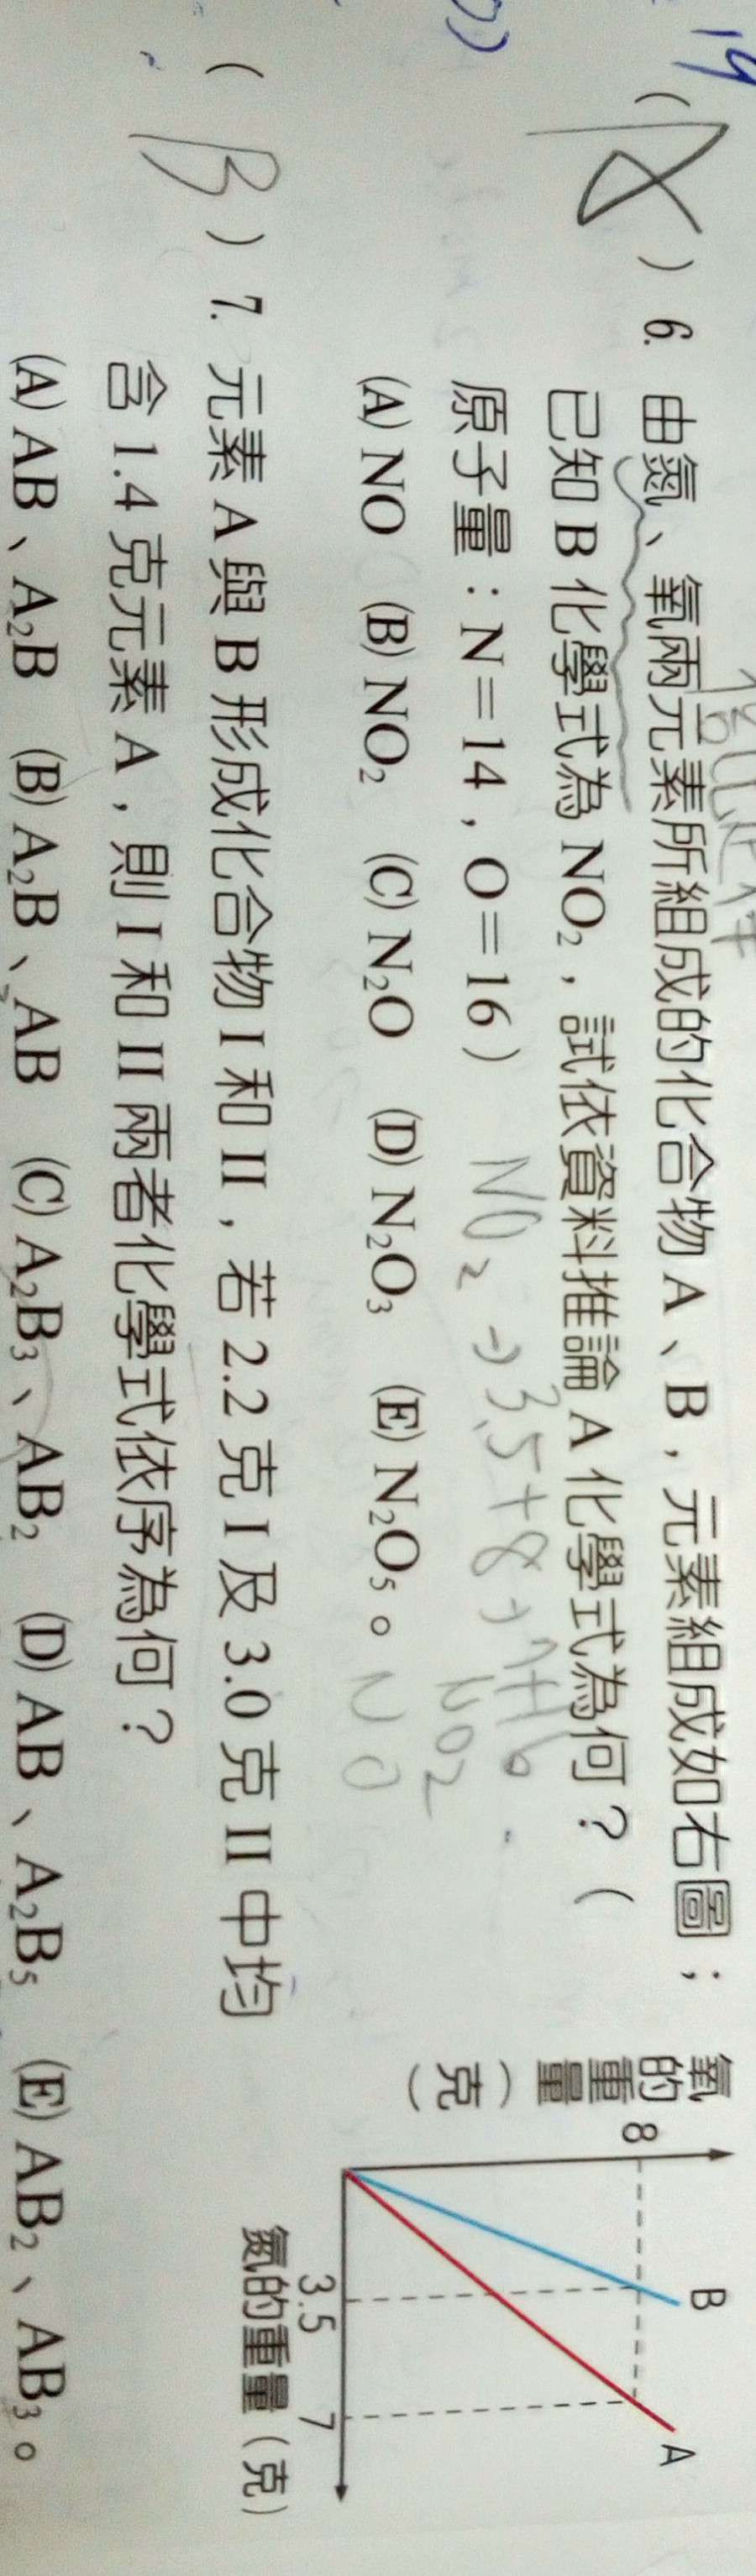 14
( A ) 6. 由氮、氧兩元素所組成的化合物 A、B，元素組成如右圖；
已知 B 化學式為 NO₂，試依資料推論 A 化學式為何？（
原子量：N＝14，O＝16）
NO₂ → 3.5+8 → 7+16
NO₂
NO
(A) NO (B) NO₂ (C) N₂O (D) N₂O₃ (E) N₂O₅。
氧的重量（克）
8
B
A
3.5
7
氮的重量（克）
( B ) 7. 元素 A 與 B 形成化合物 I 和 II，若 2.2 克 I 及 3.0 克 II 中均
含 1.4 克元素 A，則 I 和 II 兩者化學式依序為何？
(A) AB、A₂B (B) A₂B、AB (C) A₂B₃、AB₂ (D) AB、A₂B₅ (E) AB₂、AB₃。